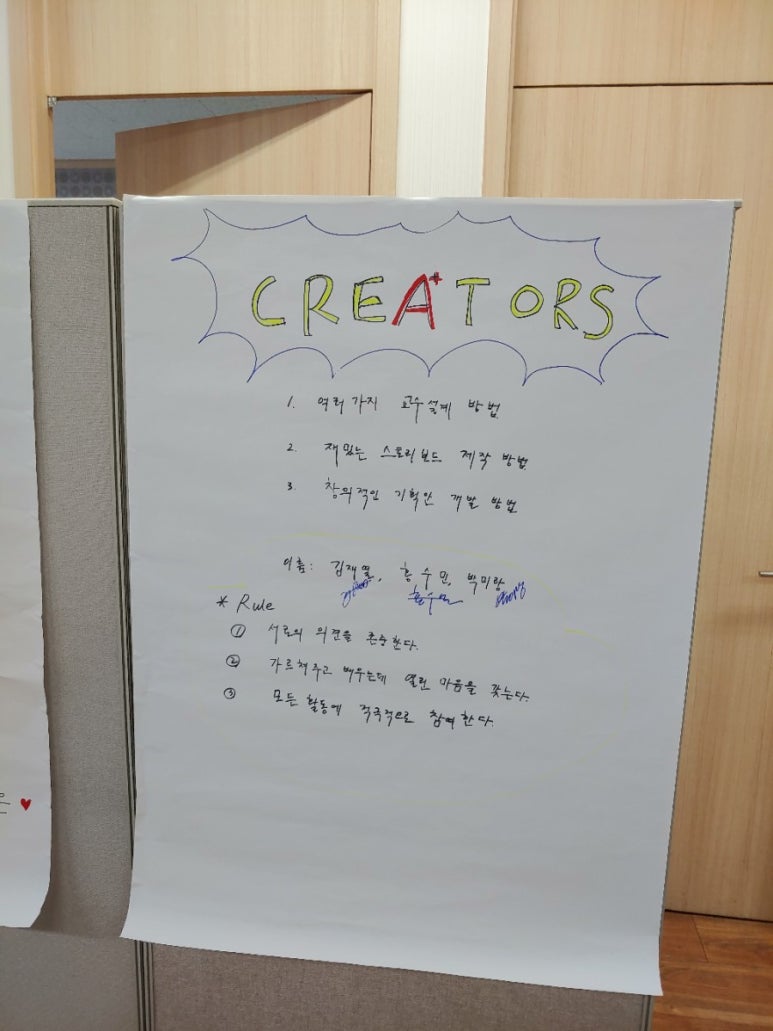 CREA+TORS
1. 여러가지 교수설계 방법
2. 재밌는 스토리보드 제작 방법
3. 창의적인 기획안 개발 방법
이름: 김재열, 홍수민, 박미랑
홍수민
* Rule
① 서로의 의견을 존중한다.
② 가르쳐주고 배우는데 열린 마음을 갖는다.
③ 모든 활동에 적극적으로 참여한다.
♥